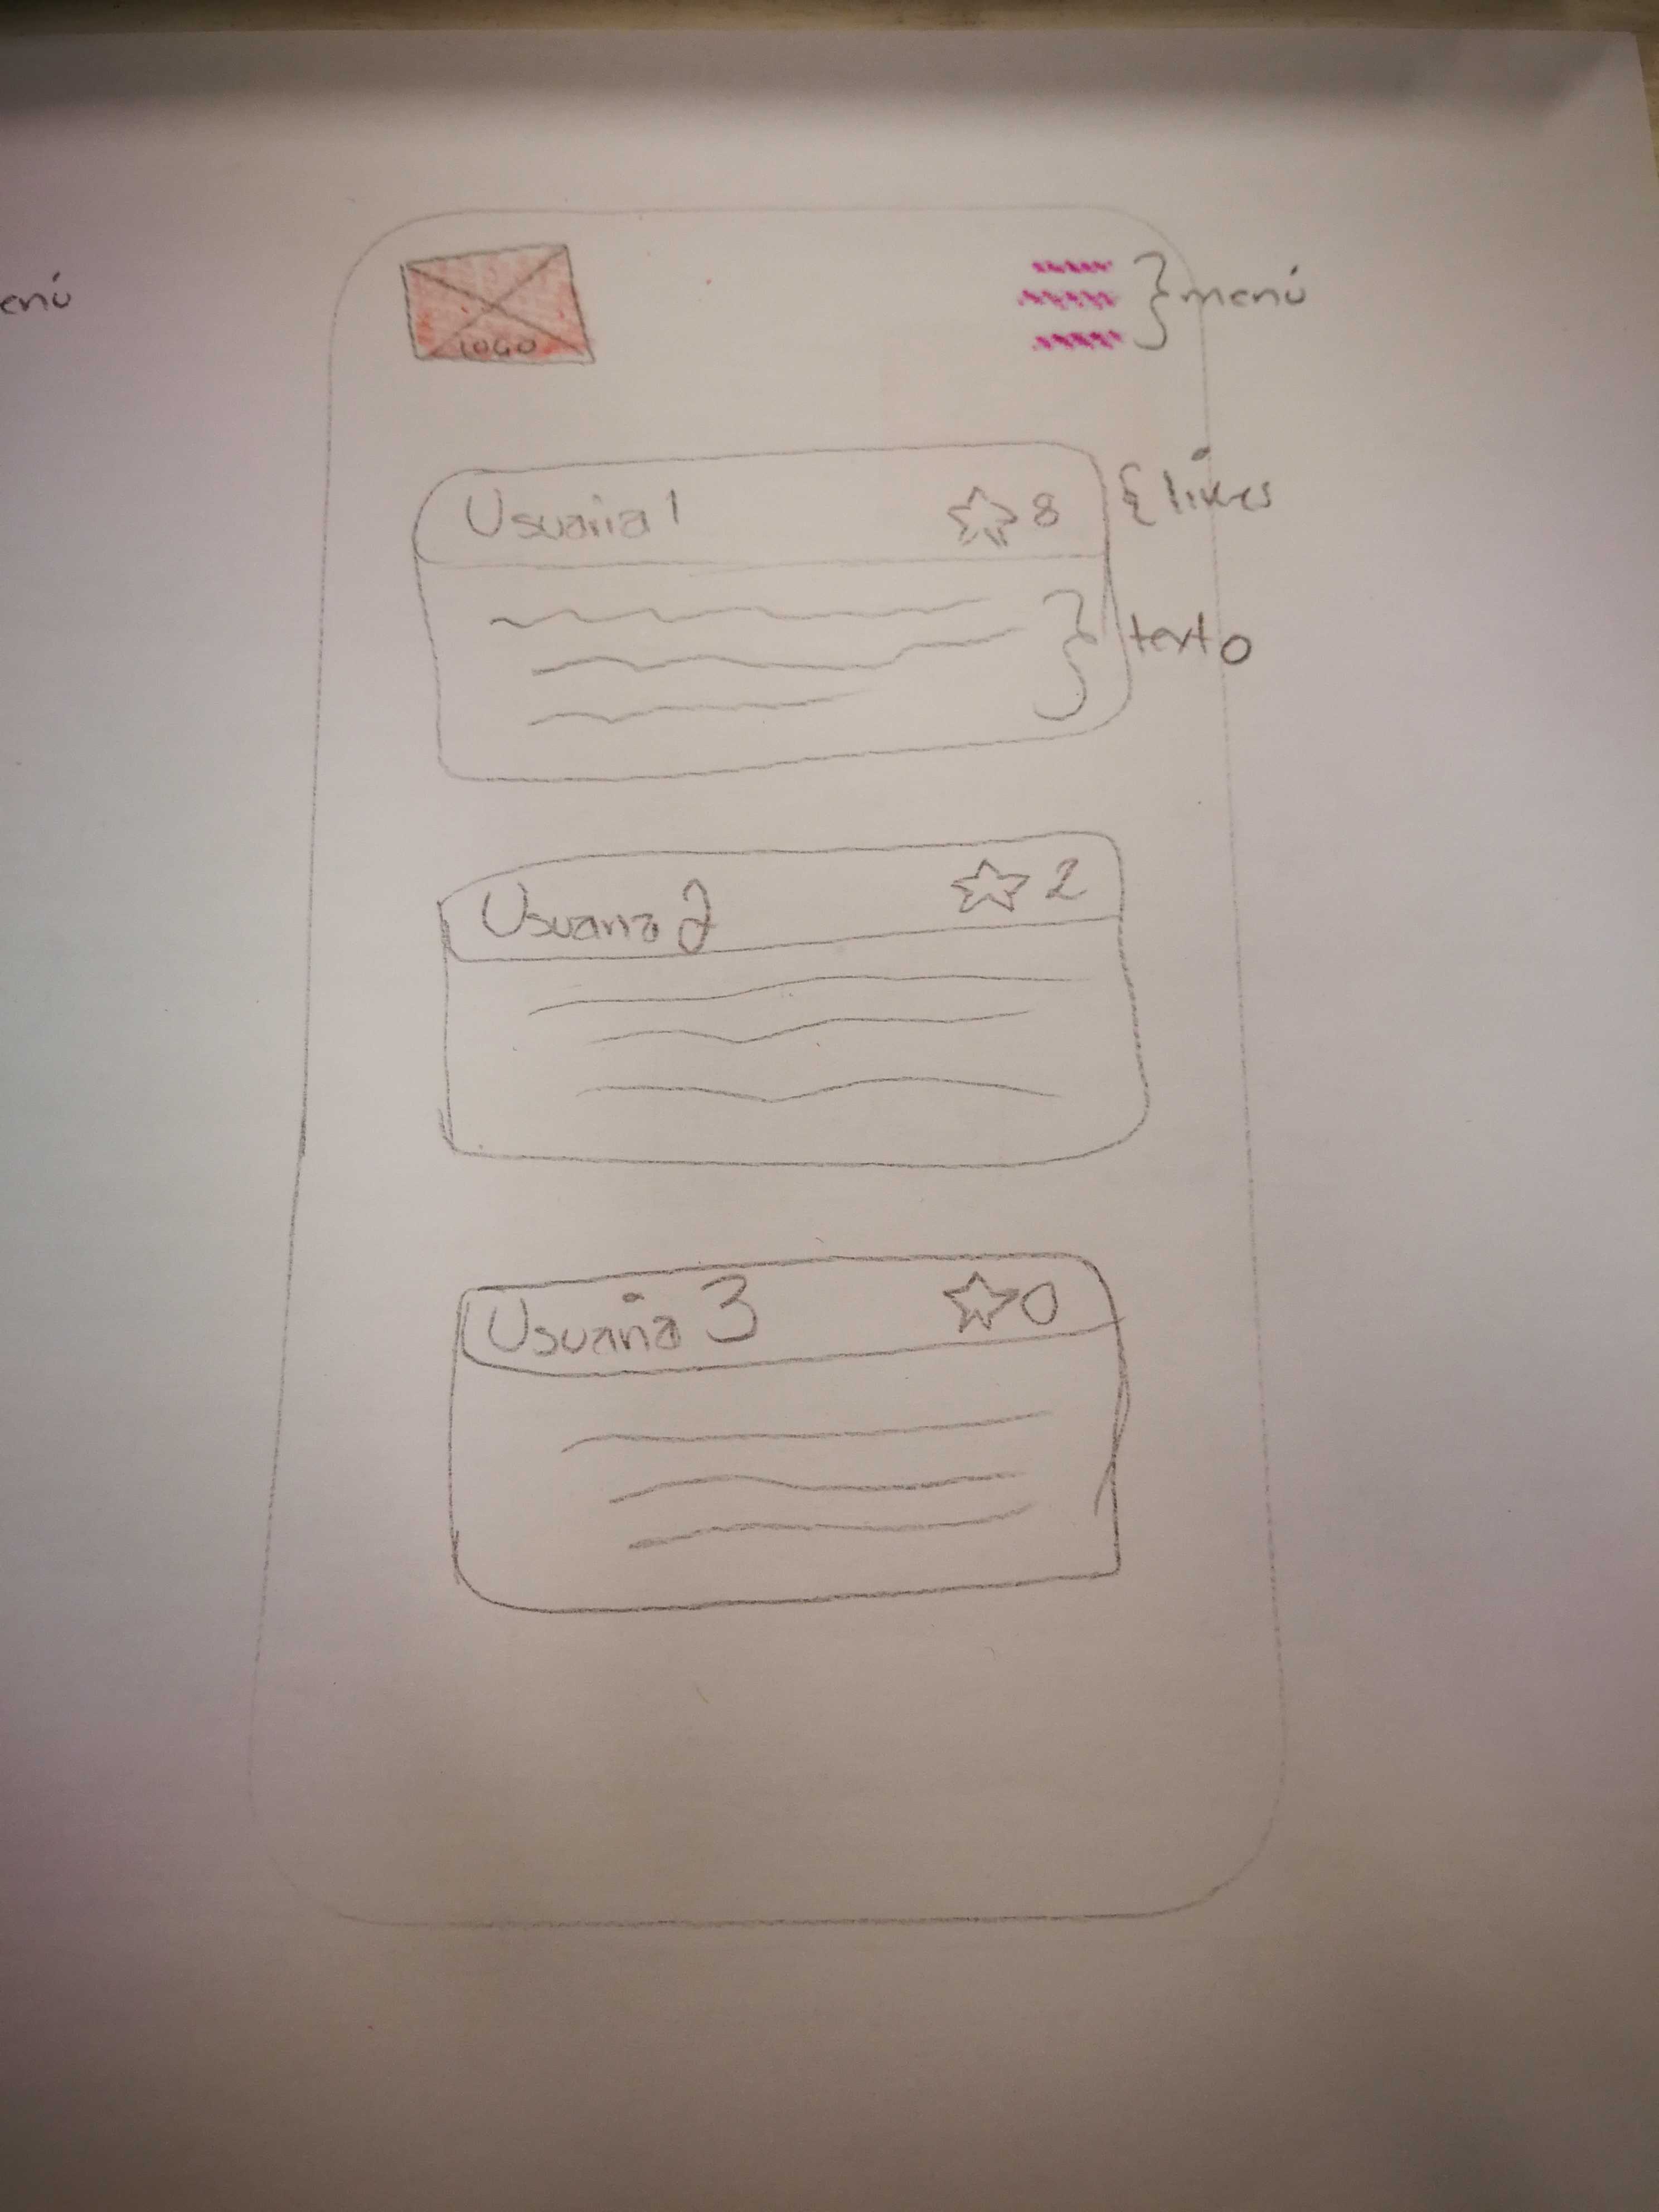 LOGO
menú
enú
Usuaria 1
8
likes
texto
Usuaria 2
2
Usuaria 3
0